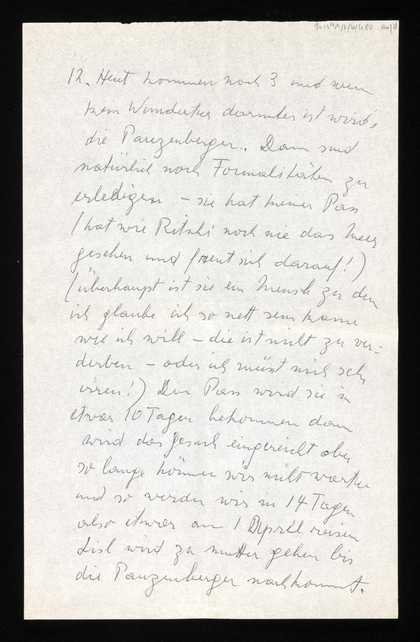 12. Heut kommen noch 3 und wenn
kein Wundertier darunter ist wird's
die Panzenberger. Dann sind
natürlich noch Formalitäten zu
erledigen – sie hat keinen Pass
(hat wie Ritschi noch nie das Meer
gesehen und freut sich darauf!)
(überhaupt ist sie ein Mensch zu dem
ich glaube ich so nett sein kann
wie ich will – die ist nicht zu ver-
derben – oder ich müsst mich sehr
irren!) Den Pass wird sie in
etwa 10 Tagen bekommen dann
wird das Gesuch eingereicht aber
so lange können wir nicht warten
und so werden wir in 14 Tagen
also etwa am 1 April reisen
Lisl wird zu Mutter gehen bis
die Panzenberger nachkommt.